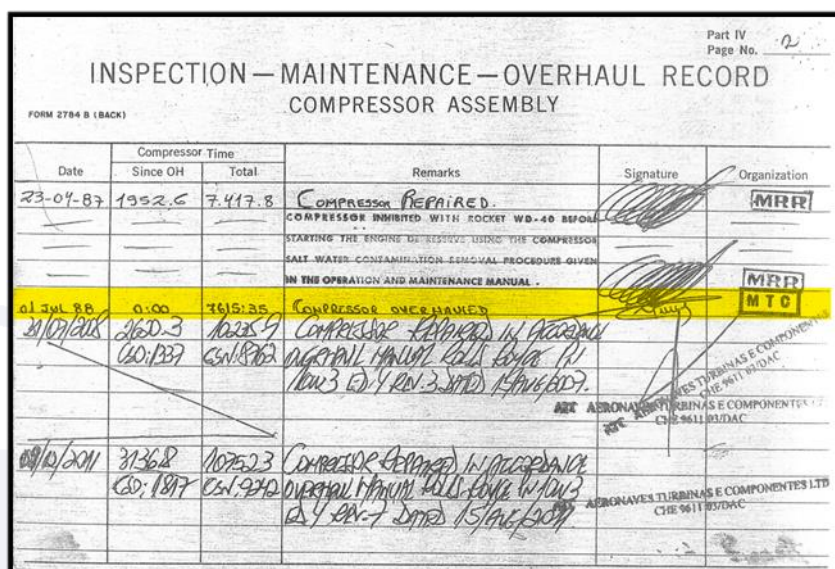 Part IV
Page No. 2
INSPECTION—MAINTENANCE—OVERHAUL RECORD
COMPRESSOR ASSEMBLY
FORM 2784 B (BACK)
Compressor Time
Date Since OH Total Remarks Signature Organization
23-04-87 1952.6 7.417.8 COMPRESSOR REPAIRED. MRR
COMPRESSOR INHIBITED WITH ROCKET WD-40 BEFORE
STARTING THE ENGINE DE RESERVE USING THE COMPRESSOR
SALT WATER CONTAMINATION REMOVAL PROCEDURE GIVEN
IN THE OPERATION AND MAINTENANCE MANUAL. MRR
01 JUL 88 0:00 7615:35 COMPRESSOR OVERHAULED MTC
2620.3 COMPRESSOR REPAIRED IN ACCORDANCE
CSO:1337 CSN:8762 OVERHAUL MANUAL ROLLS ROYCE
10W3 ED.4 REV.3 DATED 15/AUG/2007.
AERONAVES TURBINAS E COMPONENTES
CHE 9611 03/DAC
ATC AERONAVES TURBINAS E COMPONENTES
CHE 9611 03/DAC
/2011 3136.8 10752.3 COMPRESSOR REPAIRED IN ACCORDANCE
CSO:1817 CSN:9242 OVERHAUL MANUAL ROLLS-ROYCE 10W3
ED 4 REV-7 DATED 15/AUG/2011
AERONAVES TURBINAS E COMPONENTES LTD
CHE 9611 03/DAC